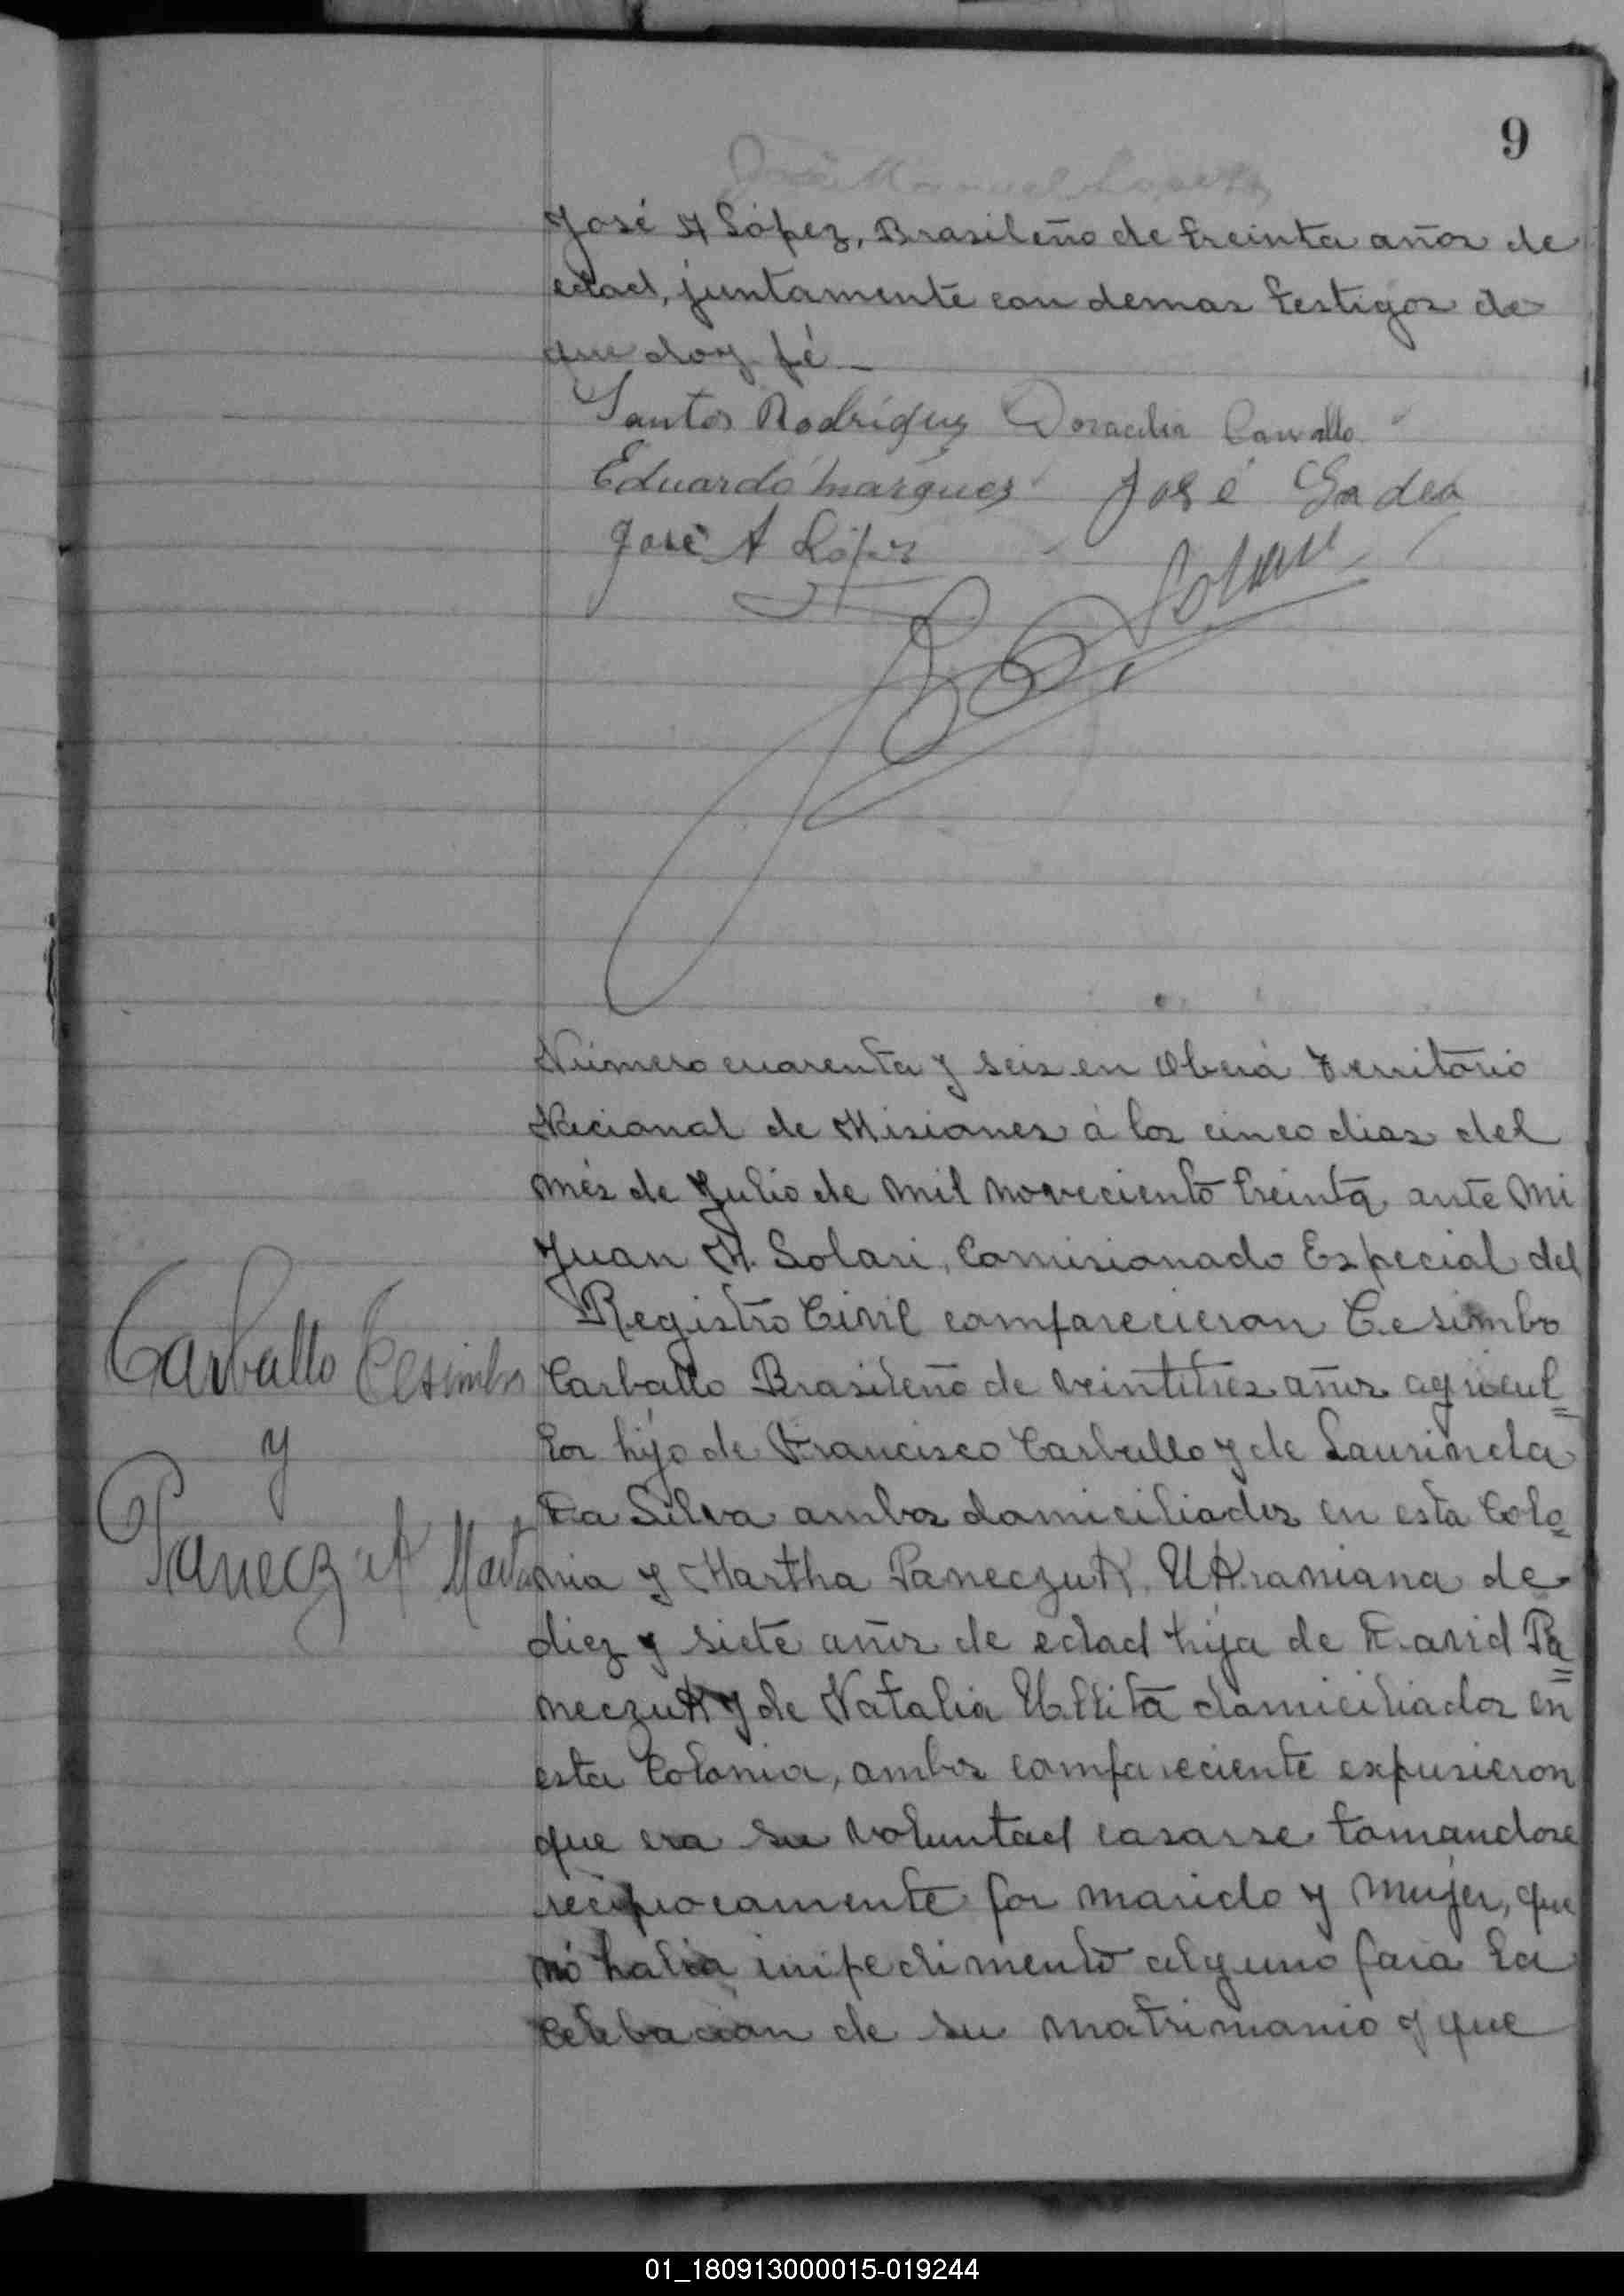 9
José Manuel Lopez
José A López, Brasileño de treinta años de
edad, juntamente con demas testigos de
que doy fé_
Santos Rodríguez Doracilia Carvallo
Eduardo Marques José Gadea
José A López
Solari
Número cuarenta y seis en Oberá Territorio
Nacional de Misiones á los cinco dias del
més de Julio de mil noveciento treinta ante mi
Juan M. Solari, Comisionado Especial del
Registro Civil comparecieron Cesimbro
Carballo Cesimbro
Carballo Brasileño de veintitres años agricul=
y
tor hijo de Francisco Carballo y de Laurinda
Da Silva ambos domiciliados en esta Colo=
Paneczuk Marta
nia y Martha Paneczuk. Ukraniana de
diez y siete años de edad hija de David Pa=
neczuk y de Natalia domiciliados en
esta Colonia, ambos compareciente expusieron
que era su voluntad casarse tomandose
reciprocamente por marido y mujer, que
nó habia impedimento alguno para la
celebacion de su matrimonio y que
01_180913000015-019244